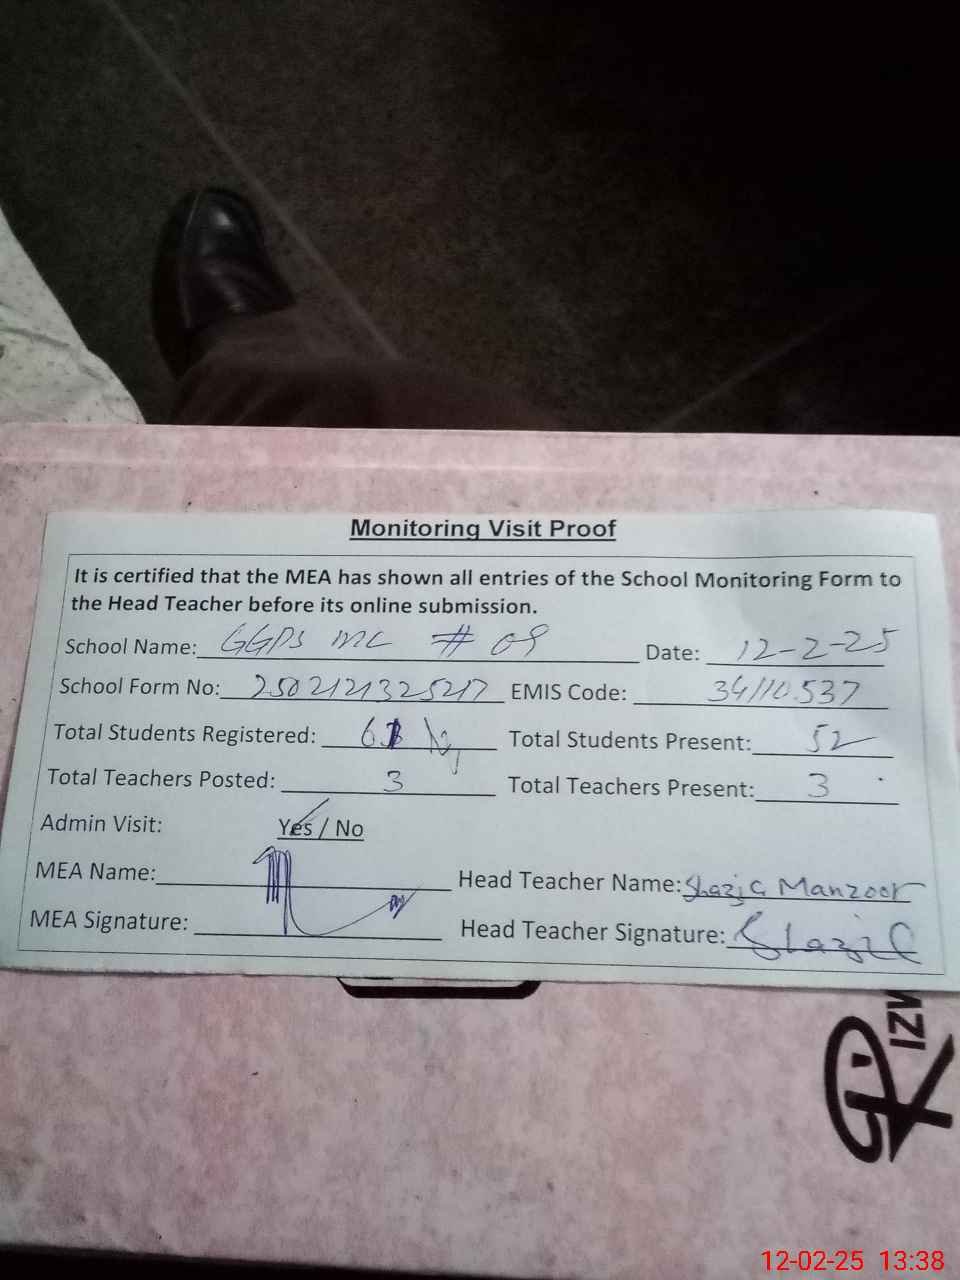 Monitoring Visit Proof
It is certified that the MEA has shown all entries of the School Monitoring Form to
the Head Teacher before its online submission.
School Name: GGPS MC # 09 Date: 12-2-25
School Form No: 2502121325217 EMIS Code: 34110537
Total Students Registered: Total Students Present: 52
Total Teachers Posted: 3 Total Teachers Present: 3
Admin Visit: Yes / No
MEA Name: Head Teacher Name: Shazia Manzoor
MEA Signature: Head Teacher Signature: Shazia
IZM
12-02-25 13:38